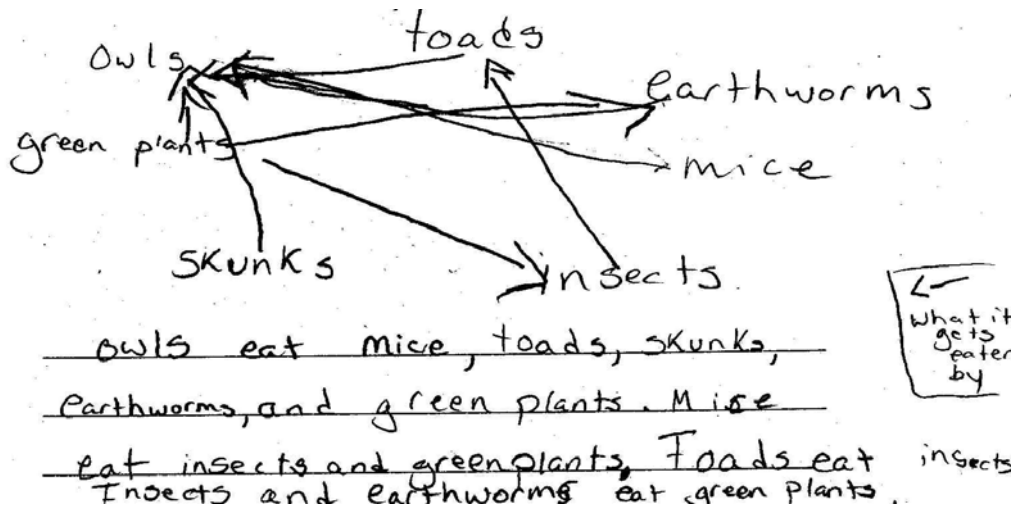 toads
owls
earthworms
green plants
mice
skunks
insects
what it
gets
eaten
by
owls eat mice, toads, skunks,
earthworms, and green plants. Mice
eat insects and green plants. Toads eat insects
Insects and earthworms eat green plants.